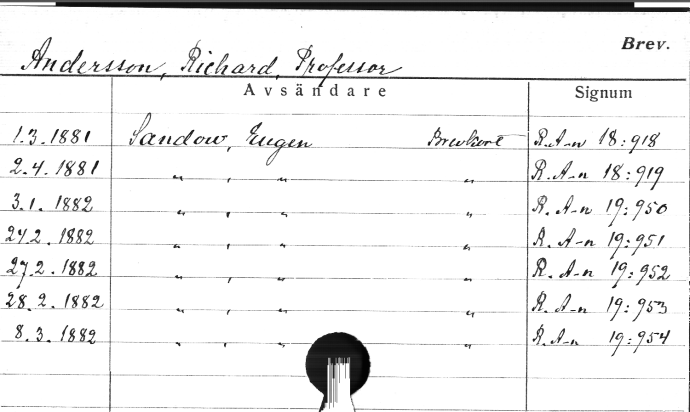 Brev.
Andersson, Richard, Professor
Avsändare Signum
1.3.1881 Sandow, Eugen Brevkort R.A-n 18:918
2.4.1881 " , " " R.A-n 18:919
3.1.1882 " , " " R.A-n 19:950
24.2.1882 " , " " R.A-n 19:951
27.2.1882 " , " " R.A-n 19:952
28.2.1882 " , " " R.A-n 19:953
8.3.1882 " , " " R.A-n 19:954